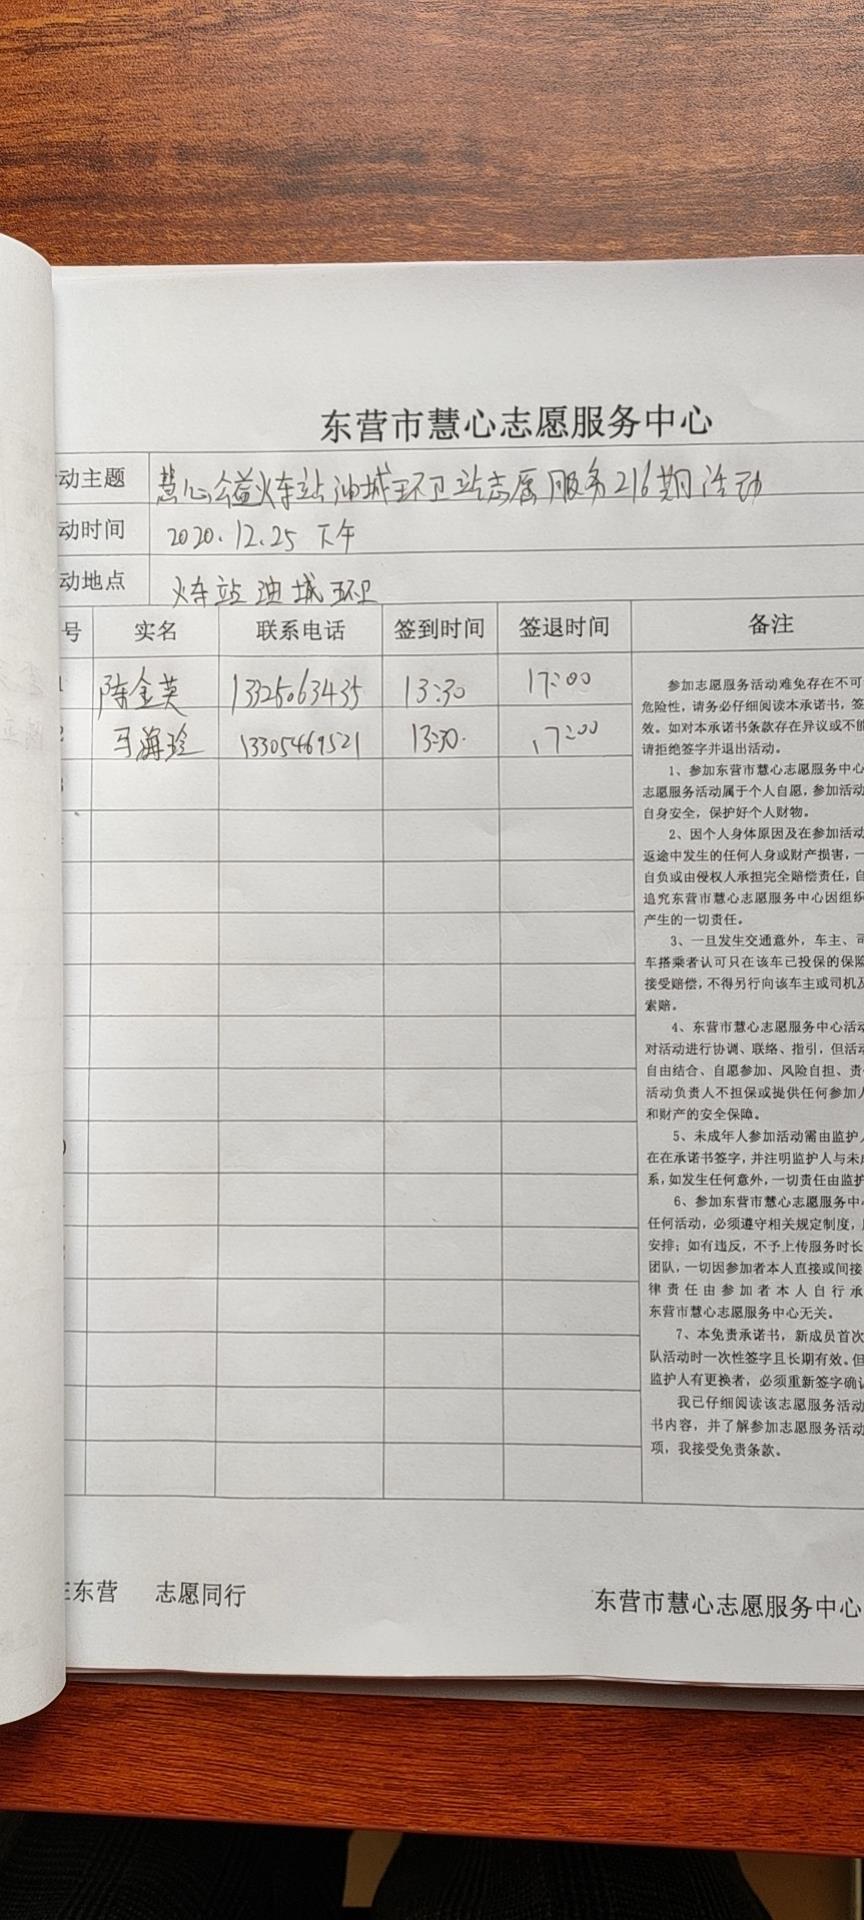 东营市慧心志愿服务中心
动主题 慧心公益火车站油城环卫站志愿服务216期活动
动时间 2020.12.25 下午
动地点 火车站油城环卫
号 实名 联系电话 签到时间 签退时间 备注
1 陈金英 13325063435 13:30 17:00
2 马海珍 13305469521 13:30. 17:00
参加志愿服务活动难免存在不可
危险性，请务必仔细阅读本承诺书，签
效。如对本承诺书条款存在异议或不能
请拒绝签字并退出活动。
1、参加东营市慧心志愿服务中心
志愿服务活动属于个人自愿，参加活动
自身安全，保护好个人财物。
2、因个人身体原因及在参加活动
返途中发生的任何人身或财产损害，一
自负或由侵权人承担完全赔偿责任，自
追究东营市慧心志愿服务中心因组织
产生的一切责任。
3、一旦发生交通意外，车主、司
车搭乘者认可只在该车已投保的保险
接受赔偿，不得另行向该车主或司机及
索赔。
4、东营市慧心志愿服务中心活动
对活动进行协调、联络、指引，但活动
自由结合、自愿参加、风险自担、责
活动负责人不担保或提供任何参加人
和财产的安全保障。
5、未成年人参加活动需由监护人
在在承诺书签字，并注明监护人与未成
系，如发生任何意外，一切责任由监护
6、参加东营市慧心志愿服务中心
任何活动，必须遵守相关规定制度，
安排；如有违反，不予上传服务时长
团队，一切因参加者本人直接或间接
律责任由参加者本人自行承
东营市慧心志愿服务中心无关。
7、本免责承诺书，新成员首次
队活动时一次性签字且长期有效。但
监护人有更换者，必须重新签字确认
我已仔细阅读该志愿服务活动
书内容，并了解参加志愿服务活动
项，我接受免责条款。
东营 志愿同行 东营市慧心志愿服务中心